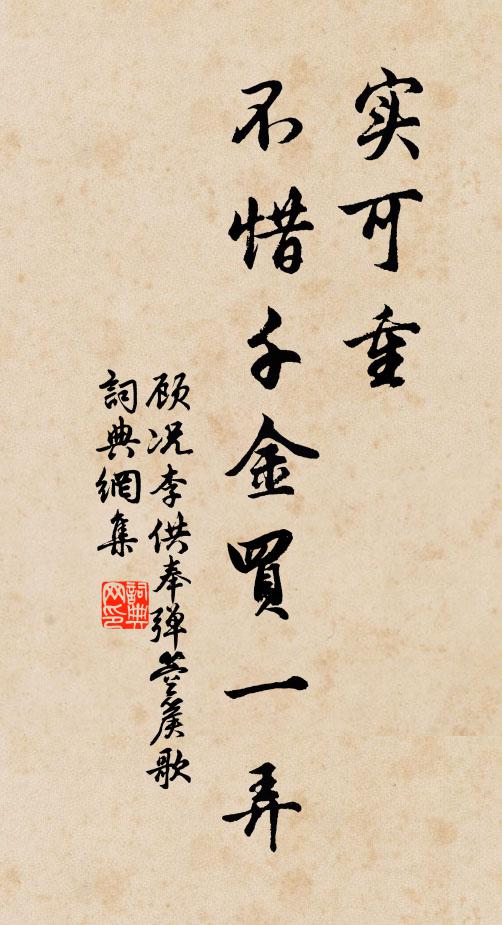 实可重
不惜千金買一弄
顾况李供奉弹箜篌歌
詞典網集
詞典网印